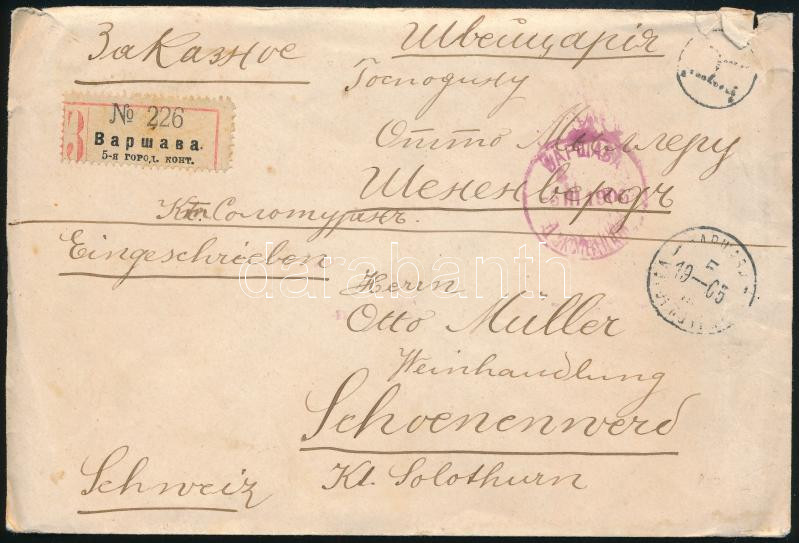 Заказное
Швейцарія
Господину
Отто Мюллеру
Шененвердъ
Кт. Солотурнъ.
З
№ 226
Варшава.
5-я город. конт.
ВАРШАВА
III 1905
5
19—05
Eingeschrieben
Herrn
Otto Müller
Weinhandlung
Schoenenwerd
Kt. Solothurn
Schweiz
darabanth